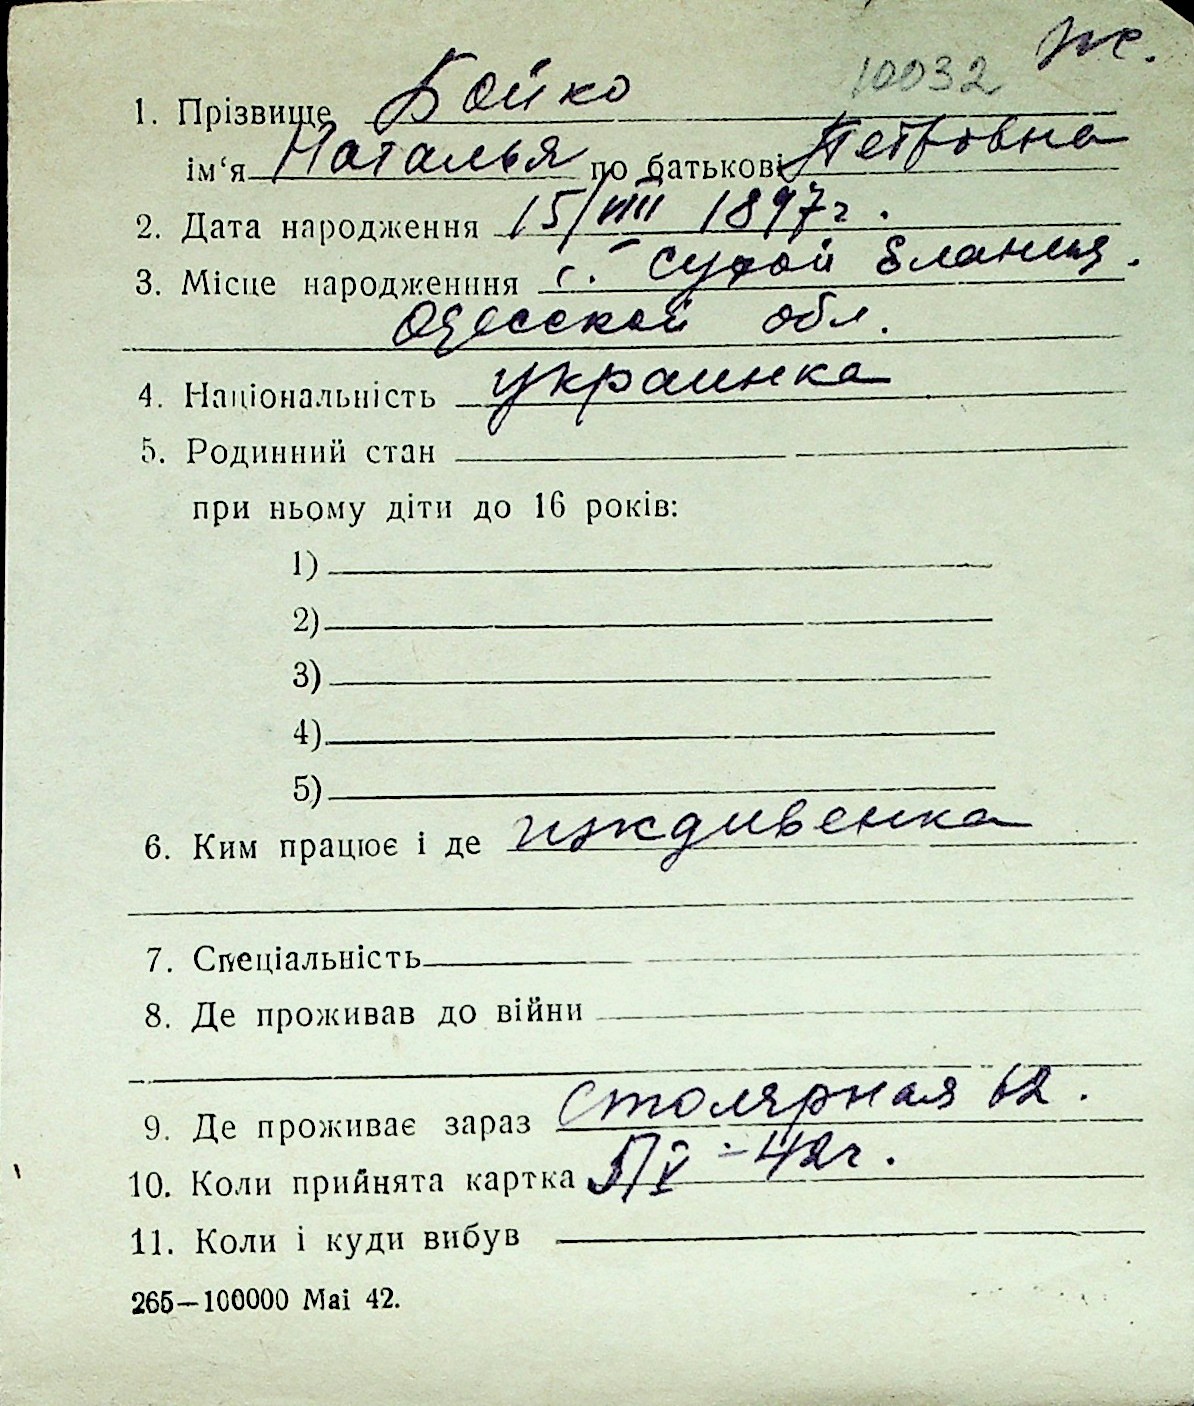 же.
10032
1. Прізвище Бойко
ім‘я Наталья по батькові Петровна
2. Дата народження 15/VIII 1897г.
3. Місце народженння с. Сухой Еланец.
Одесской обл.
4. Національність украинка
5. Родинний стан
при ньому діти до 16 років:
1)
2)
3)
4)
5)
6. Ким працює і де иждивенка
7. Спеціальність
8. Де проживав до війни
9. Де проживає зараз Столярная 62.
10. Коли прийнята картка 5/V-42г.
11. Коли і куди вибув
265—100000 Mai 42.